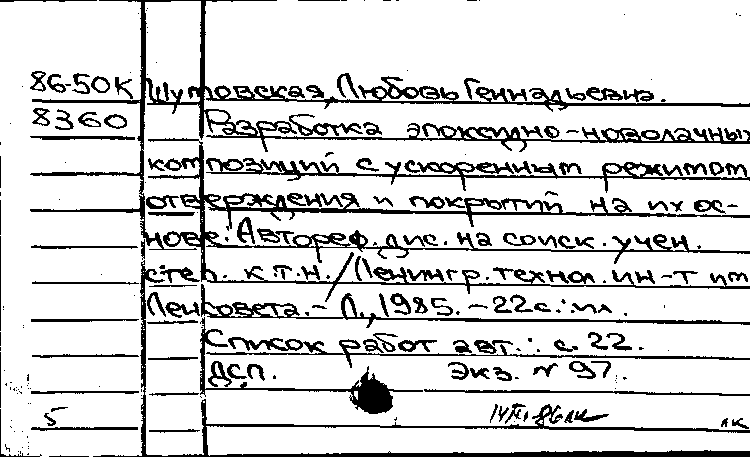 86-50К Шутовская, Любовь Геннадьевна.
8360 Разработка эпоксидно-новолачных
композиций с ускоренным режимом
отверждения и покрытий на их ос-
нове: Автореф. дис. на соиск. учен.
степ. к.т.н. / Ленингр. технол. ин-т им
Ленсовета. - Л., 1985. - 22с.: ил.
Список работ авт.: с. 22.
ДСП. Экз. N 97.
5